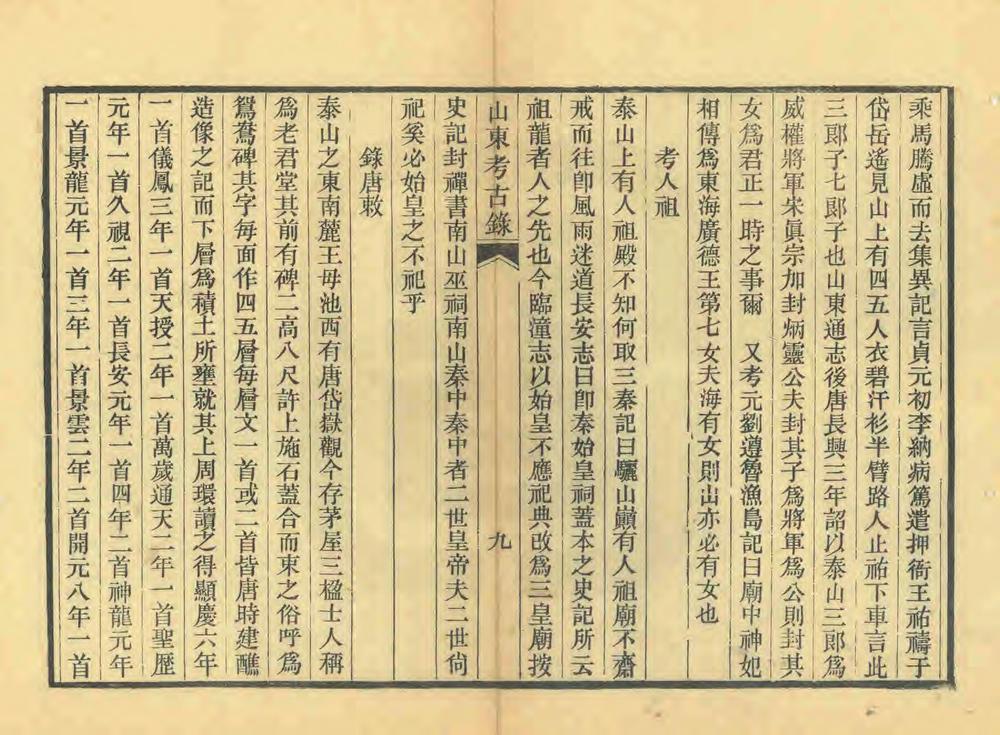 乘馬騰虛而去集異記言貞元初李納病篤遣押衙王祐禱于
岱岳遙見山上有四五人衣碧汗衫半臂路人止祐下車言此
三郞子七郞子也山東通志後唐長興三年詔以泰山三郞爲
威權將軍宋眞宗加封炳靈公夫封其子爲將軍爲公則封其
女爲君正一時之事爾　又考元劉遵魯漁島記曰廟中神妃
相傳爲東海廣德王第七女夫海有女則岀亦必有女也
考人祖
泰山上有人祖殿不知何取三秦記曰驪山巔有人祖廟不齋
戒而往卽風雨迷道長安志曰卽秦始皇祠蓋本之史記所云
祖龍者人之先也今臨潼志以始皇不應祀典改爲三皇廟按
山東考古錄
九
史記封禪書南山巫祠南山秦中秦中者二世皇帝夫二世尙
祀奚必始皇之不祀乎
錄唐敕
泰山之東南麓王母池西有唐岱嶽觀今存茅屋三楹士人稱
爲老君堂其前有碑二高八尺許上施石蓋合而束之俗呼爲
鴛鴦碑其字每面作四五層每層文一首或二首皆唐時建醮
造像之記而下層爲積土所壅就其上周環讀之得顯慶六年
一首儀鳳三年一首天授二年一首萬歲通天二年一首聖歷
元年一首久視二年一首長安元年一首四年二首神龍元年
一首景龍元年一首三年一首景雲二年二首開元八年一首